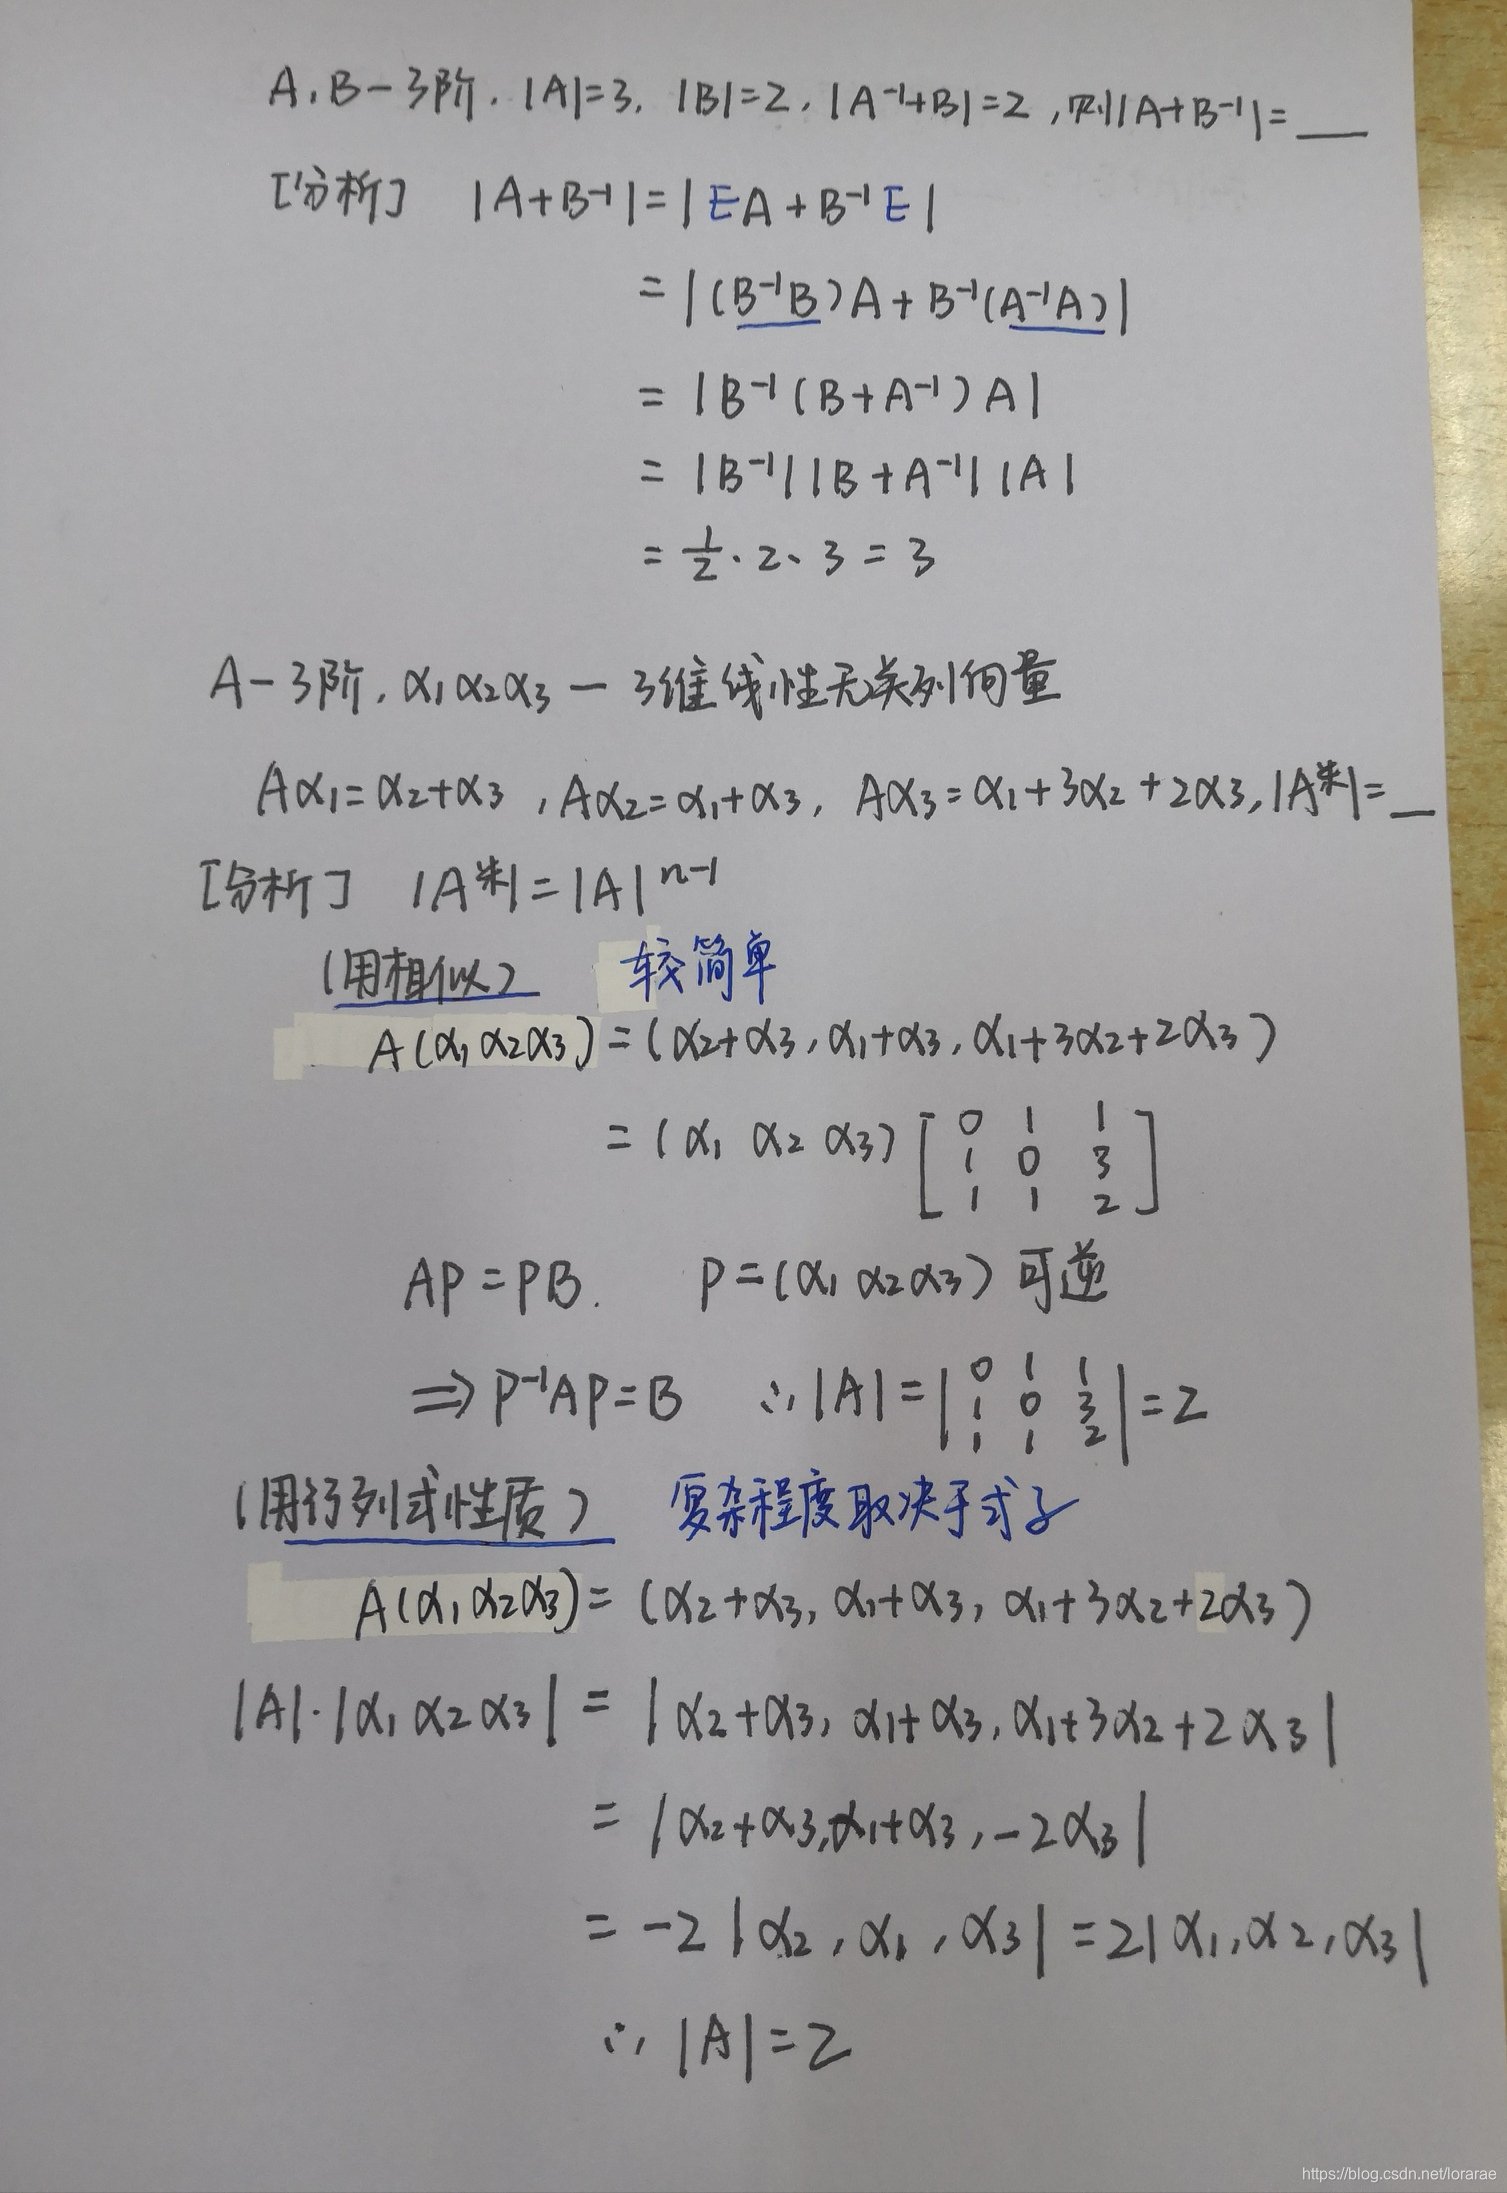 A,B-3阶. |A|=3, |B|=2, |A⁻¹+B|=2,则|A+B⁻¹|=___
[分析] |A+B⁻¹|=|EA+B⁻¹E|
=|(B⁻¹B)A+B⁻¹(A⁻¹A)|
=|B⁻¹(B+A⁻¹)A|
=|B⁻¹||B+A⁻¹||A|
=½·2·3=3
A-3阶, α₁α₂α₃-3维线性无关列向量
Aα₁=α₂+α₃, Aα₂=α₁+α₃, Aα₃=α₁+3α₂+2α₃, |A*|=_
[分析] |A*|=|A|ⁿ⁻¹
(用相似) 较简单
A(α₁α₂α₃)=(α₂+α₃,α₁+α₃,α₁+3α₂+2α₃)
=(α₁ α₂ α₃)[0 1 1
1 0 3
1 1 2]
AP=PB. P=(α₁ α₂ α₃)可逆
⇒P⁻¹AP=B ∴|A|=|0 1 1
1 0 3
1 1 2|=2
(用行列式性质) 复杂程度取决于式子
A(α₁α₂α₃)=(α₂+α₃,α₁+α₃,α₁+3α₂+2α₃)
|A|·|α₁ α₂ α₃|=|α₂+α₃,α₁+α₃,α₁+3α₂+2α₃|
=|α₂+α₃,α₁+α₃,-2α₃|
=-2|α₂,α₁,α₃|=2|α₁,α₂,α₃|
∴|A|=2
https://blog.csdn.net/lorarae